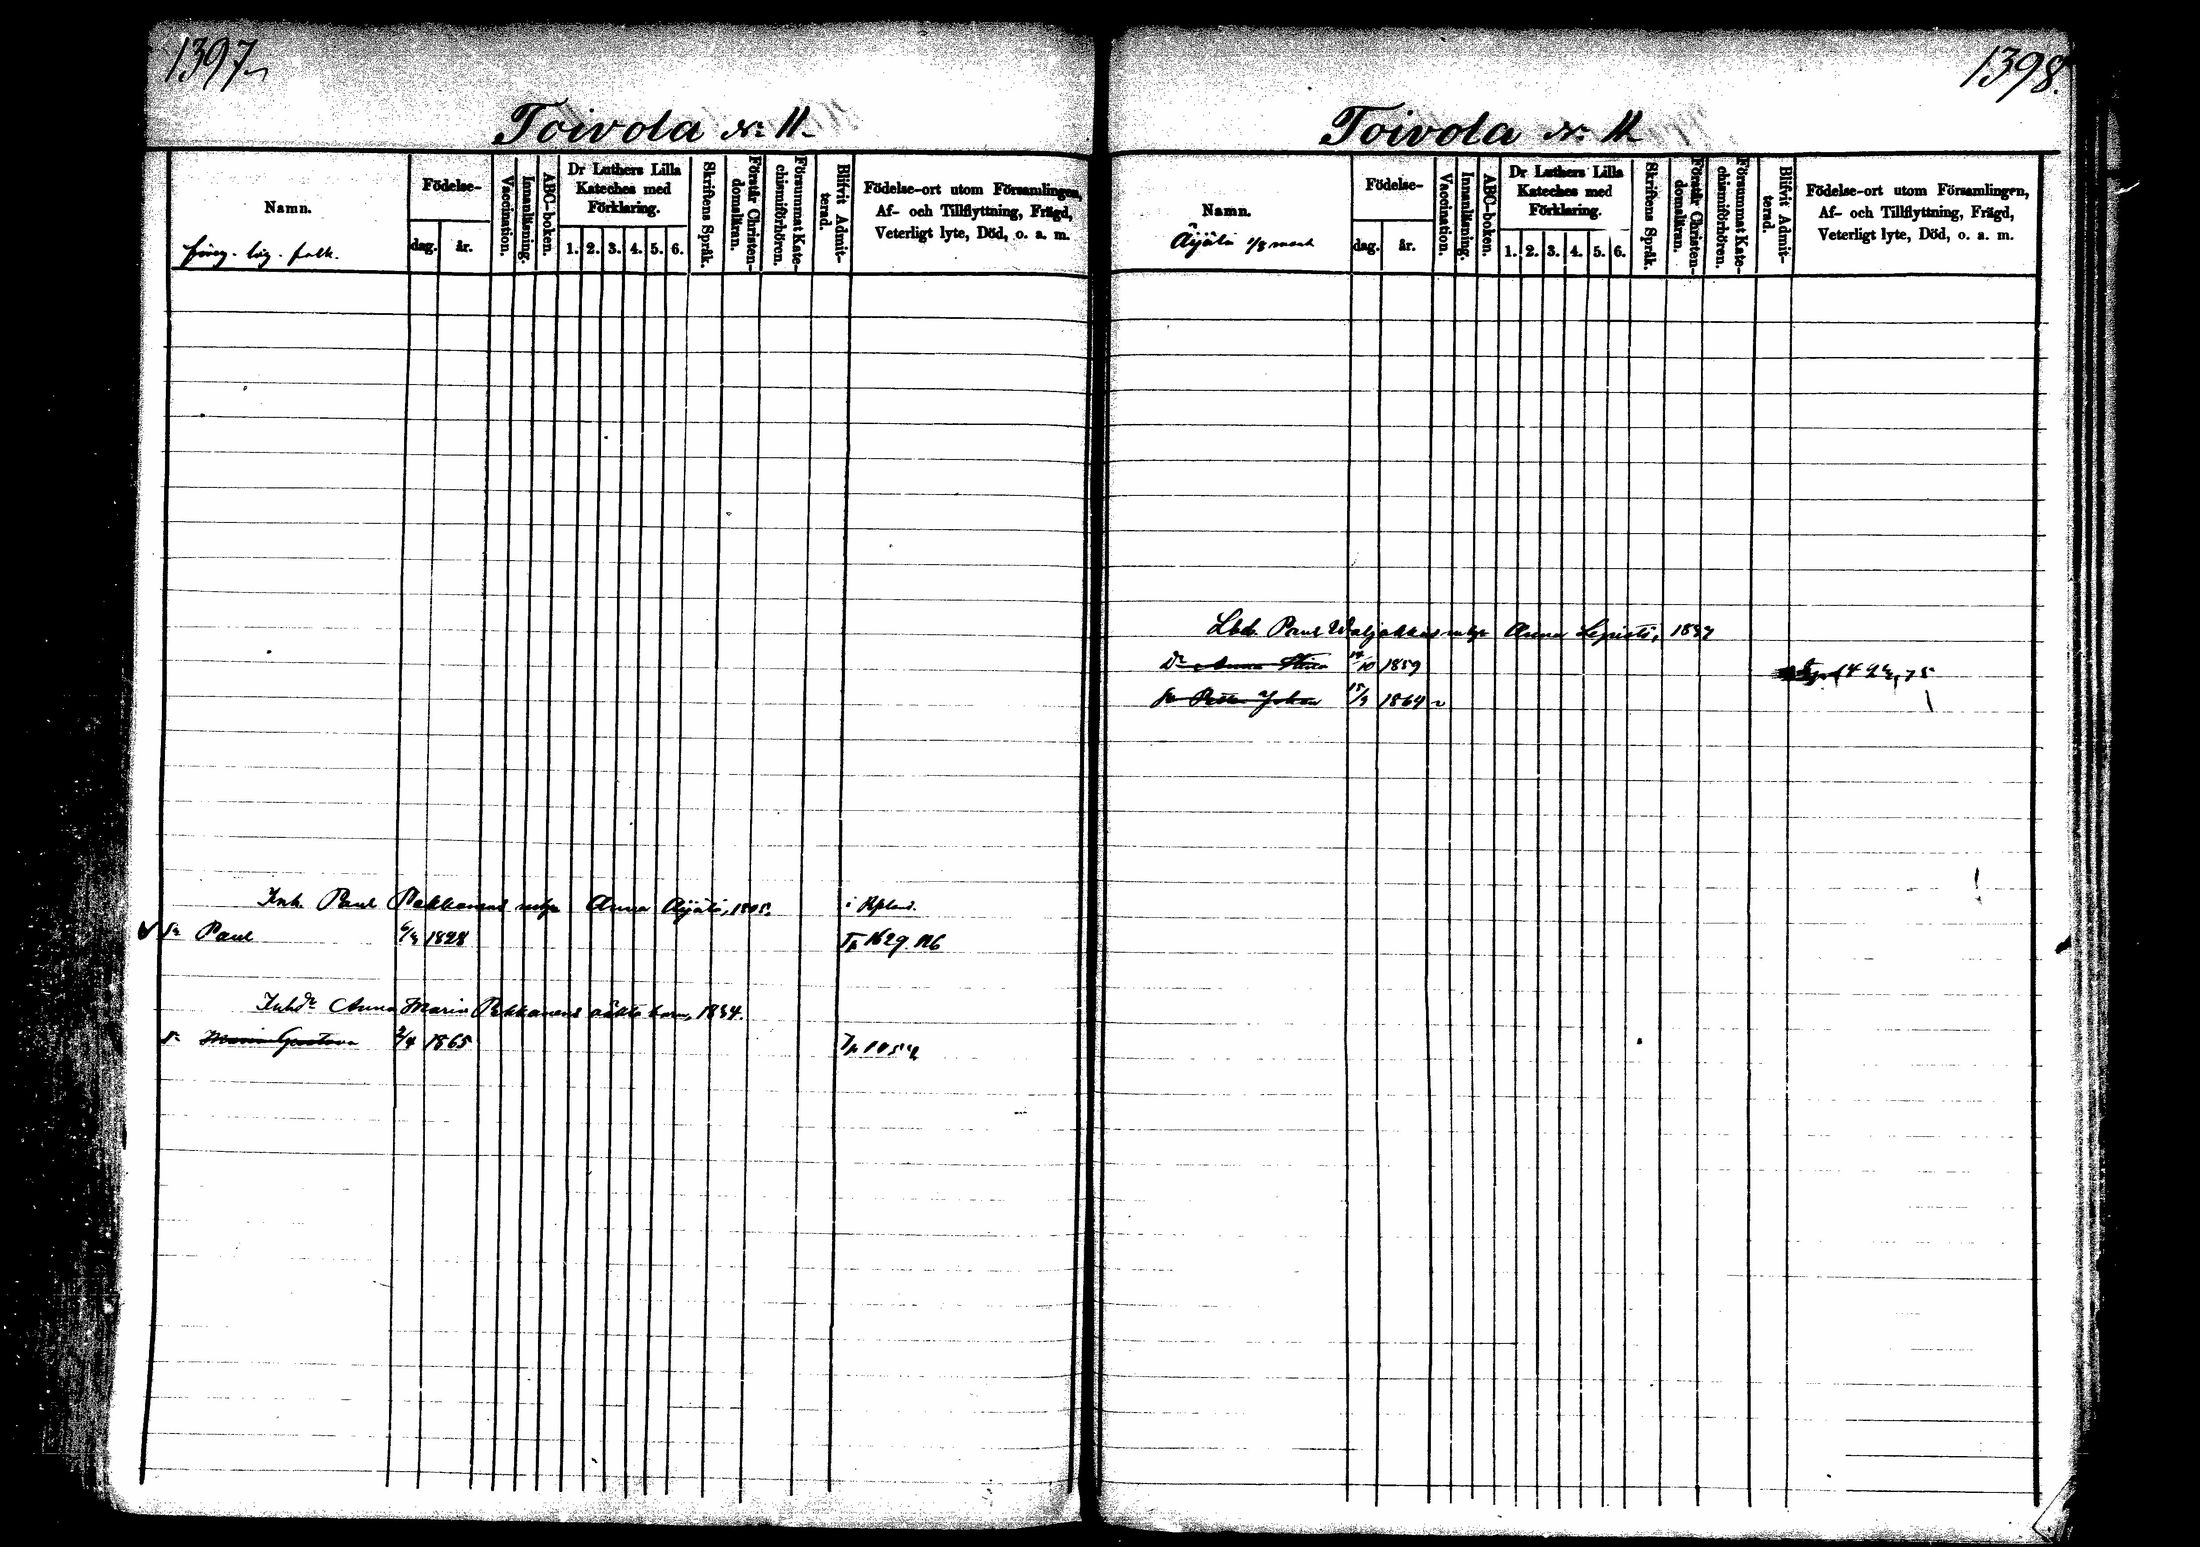 1397
Toivola No 11.
Namn.
Födelse-
dag.
år.
Vaccination.
Innanläsning.
ABC-boken.
Dr Luthers Lilla
Kateches med
Förklaring.
1. 2. 3. 4. 5. 6.
Skriftens Språk.
Förstår Christen-
domsläran.
Försummat Kate-
chismiförhören.
Blifvit Admit-
terad.
Födelse-ort utom Församlingen,
Af- och Tillflyttning, Frägd,
Veterligt lyte, Död, o. a. m.
folk.
Inh. Paul Pekkanens enka Anna Äijälä, 1805.
Sn Paul 1828
Inhdr Anna Maria Pekkanens oäkta barn, 1834.
Maria Gustava 2/4 1865
1398.
Toivola No 11.
Namn.
Äijälä 1/8 mant
Födelse-
dag.
år.
Vaccination.
Innanläsning.
ABC-boken.
Dr Luthers Lilla
Kateches med
Förklaring.
1. 2. 3. 4. 5. 6.
Skriftens Språk.
Förstår Christen-
domsläran.
Försummat Kate-
chismiförhören.
Blifvit Admit-
terad.
Födelse-ort utom Församlingen,
Af- och Tillflyttning, Frägd,
Veterligt lyte, Död, o. a. m.
Paul Waljakkas Anna Lepistö, 1837
Dr Anna Stina 14/10 1859
Sn Petter Johan 15/3 1864